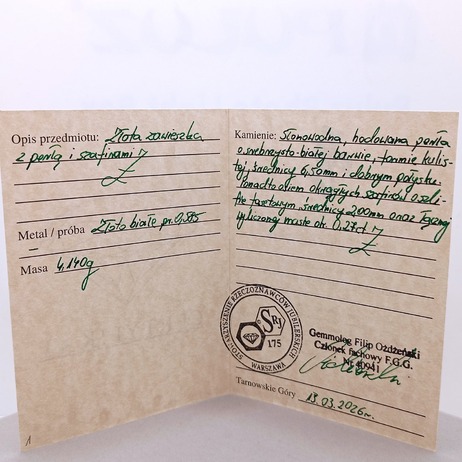 Opis przedmiotu: Złota zawieszka
z perłą i szafirami
Metal / próba Złoto białe pr. 0,585
Masa 4,140g
1
Kamienie: Słonowodna, hodowana perła
o srebrzysto-białej barwie, formie kulis-
tej, średnicy 6,50mm i dobrym połysku.
Ponadto osiem okrągłych szafirów o szli-
fie fasetowym, średnicy 2,00mm oraz łącznej
wyliczonej masie ok. 0,27ct
STOWARZYSZENIE RZECZOZNAWCÓW JUBILERSKICH
SRJ
175
WARSZAWA
Gemmolog Filip Ożdżeński
Członek fachowy F.G.G.
Tarnowskie Góry 13.03.2026r.